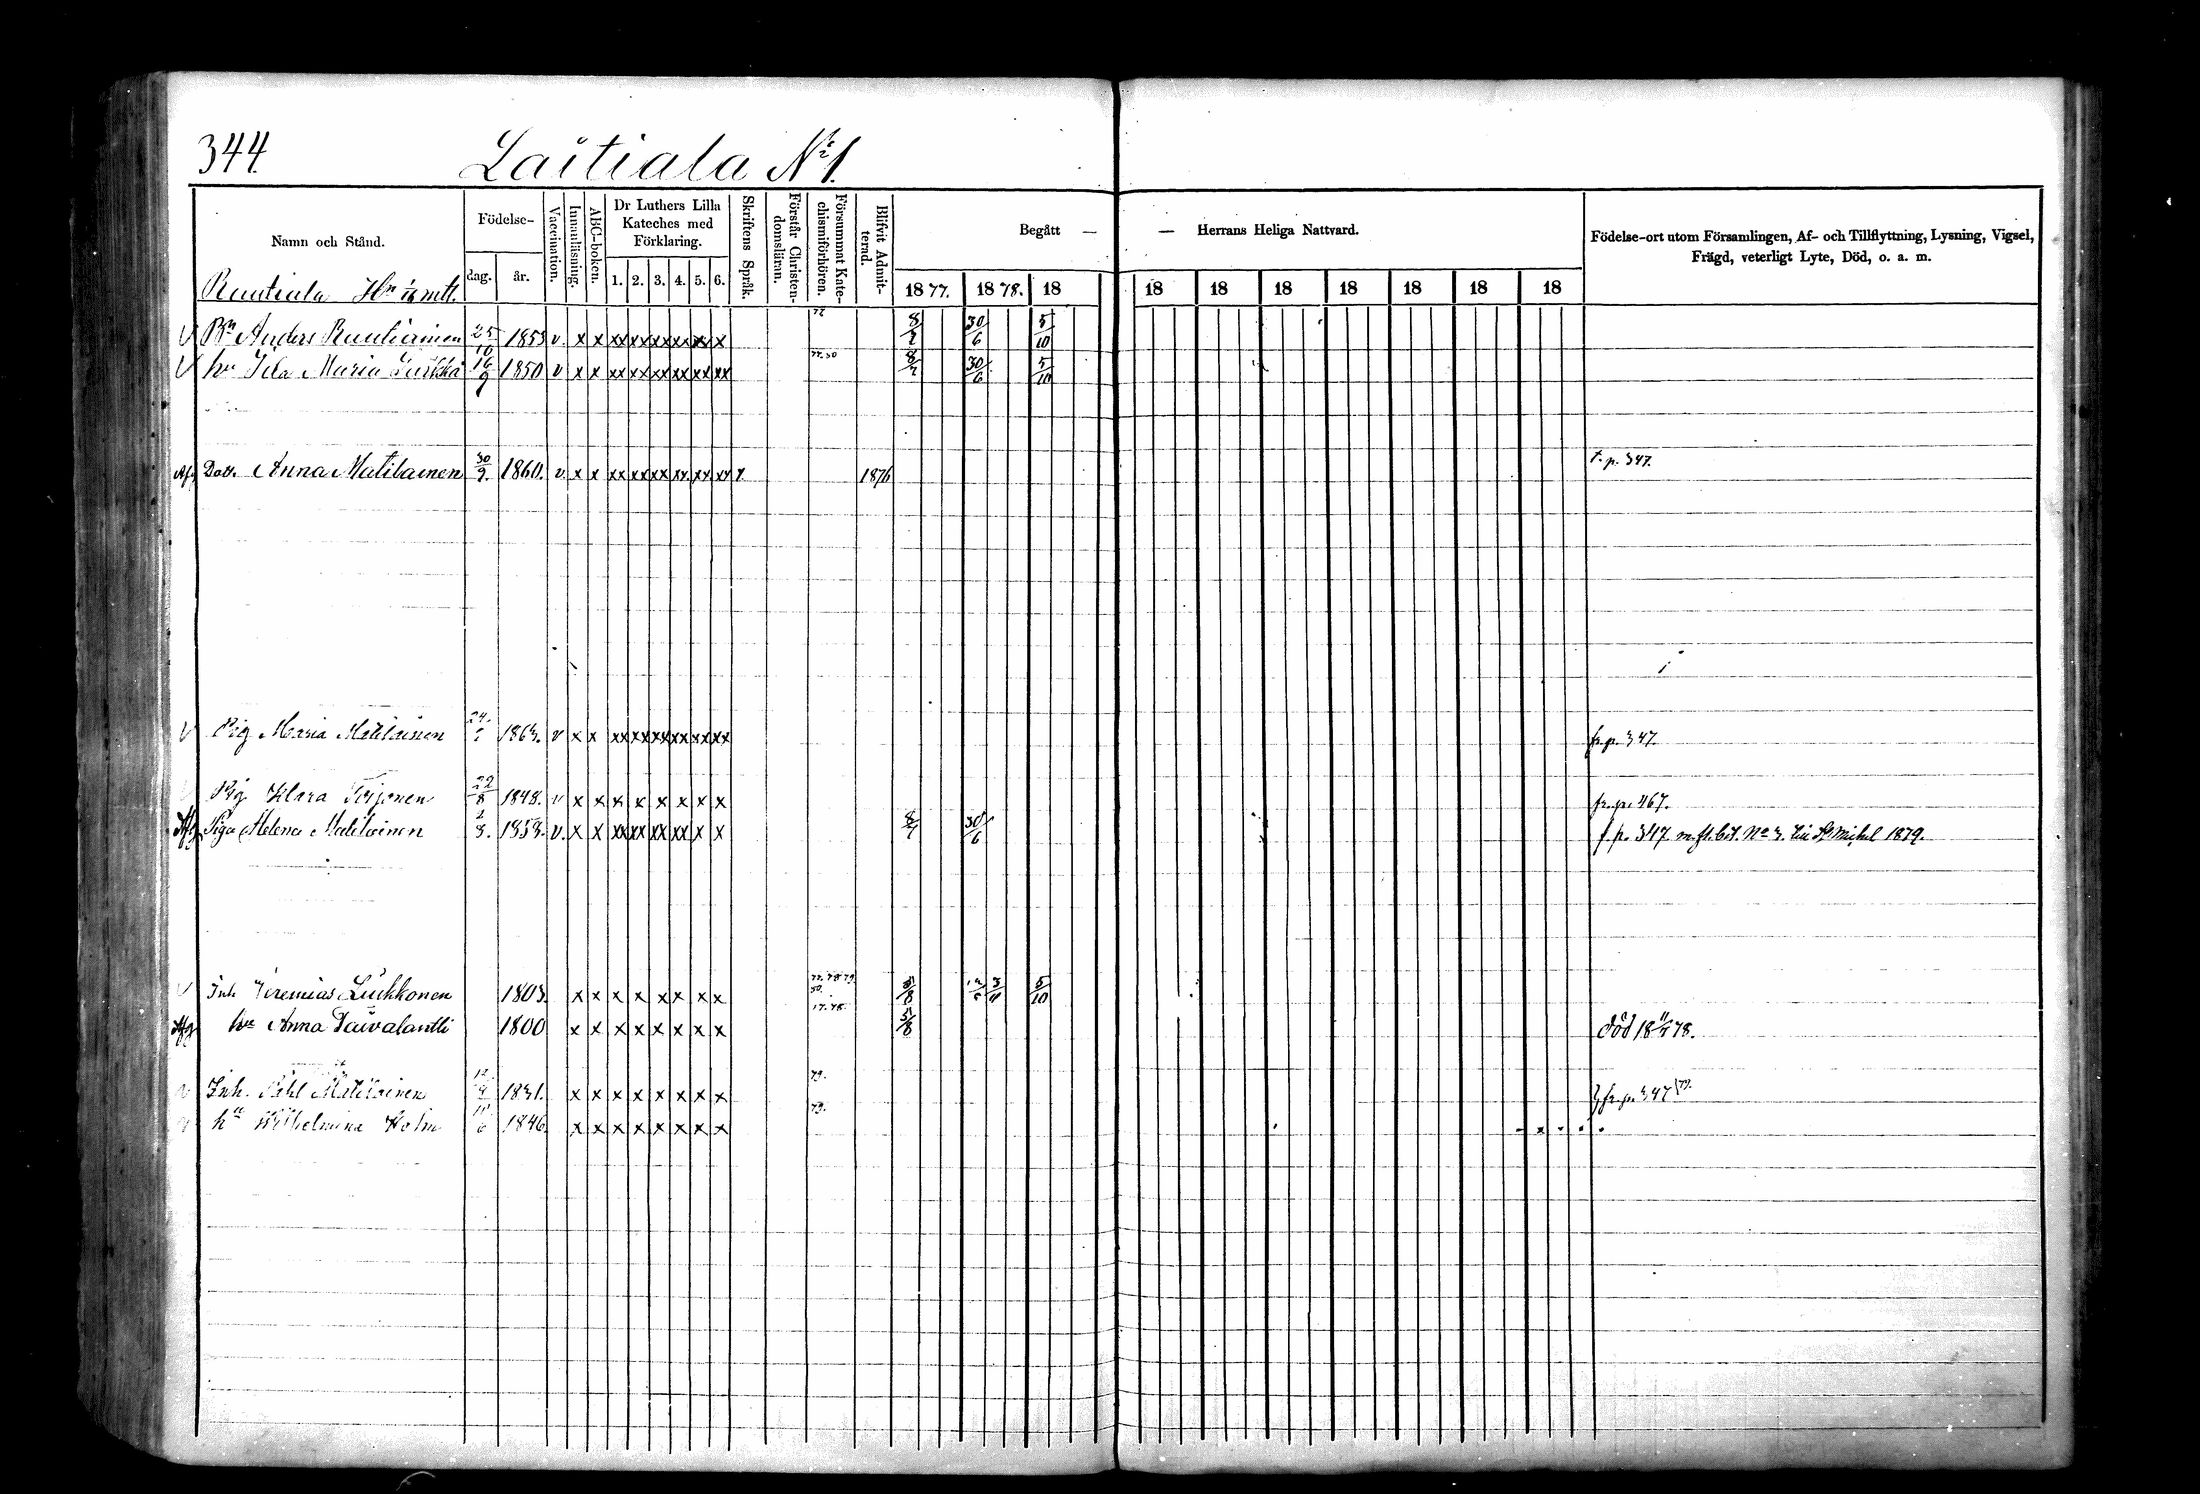 344.
Laitiala No 1.
Namn och Stånd.
Födelse-
dag.
år.
Vaccination.
Innanläsning.
ABC-boken.
Dr Luthers Lilla
Kateches med
Förklaring.
1. 2. 3. 4. 5. 6.
Skriftens Språk.
Förstår Christen-
domsläran.
Försummat Kate-
chismiförhören.
Blifvit Admit-
terad.
Begått — — Herrans Heliga Nattvard.
18 77. 18 78. 18 18 18 18 18 18 18 18
Födelse-ort utom Församlingen, Af- och Tillflyttning, Lysning, Vigsel,
Frägd, veterligt Lyte, Död, o. a. m.
Rautiala Hn mtl.
v Bn Anders Rautiainen 25/10 1853 v. x x xx xx xx xx xx x 30/6 5/10
v hu Ida Maria 16/9 1850 v x x xx xx xx xx xx xx 30/6 5/10
Afg Dott. Anna Matilainen 30/9. 1860. v. x x xx xx xx xx. xx. xx 1876 f. p. 347.
v Pig Maria Matilainen 1863. v x x xx xx xx xx xx xx fr. p. 347.
Pig Klara Toijonen 22/8 1848. v x x x x x x x x fr. p. 467.
Afg Piga Helena Matilainen 1853. v. x x xx xx xx xx x x 30/6 f. p. 347 m. fl. bet. No 3. till St Michel 1879.
v Inh Jeremias Liukkonen 1803. x x x x x x x x 77. 78 79 80. 5/8 5/10
Afg hu Anna Taivalantti 1800 x x x x x x x x 77. 78. 5/8 död 18 78.
v Inh. Pehl Matilainen 1831. x x x x x x x x 79. fr. p. 347 79.
v hu Wilhelmina Holm 1846 x x x x x x x x 79.